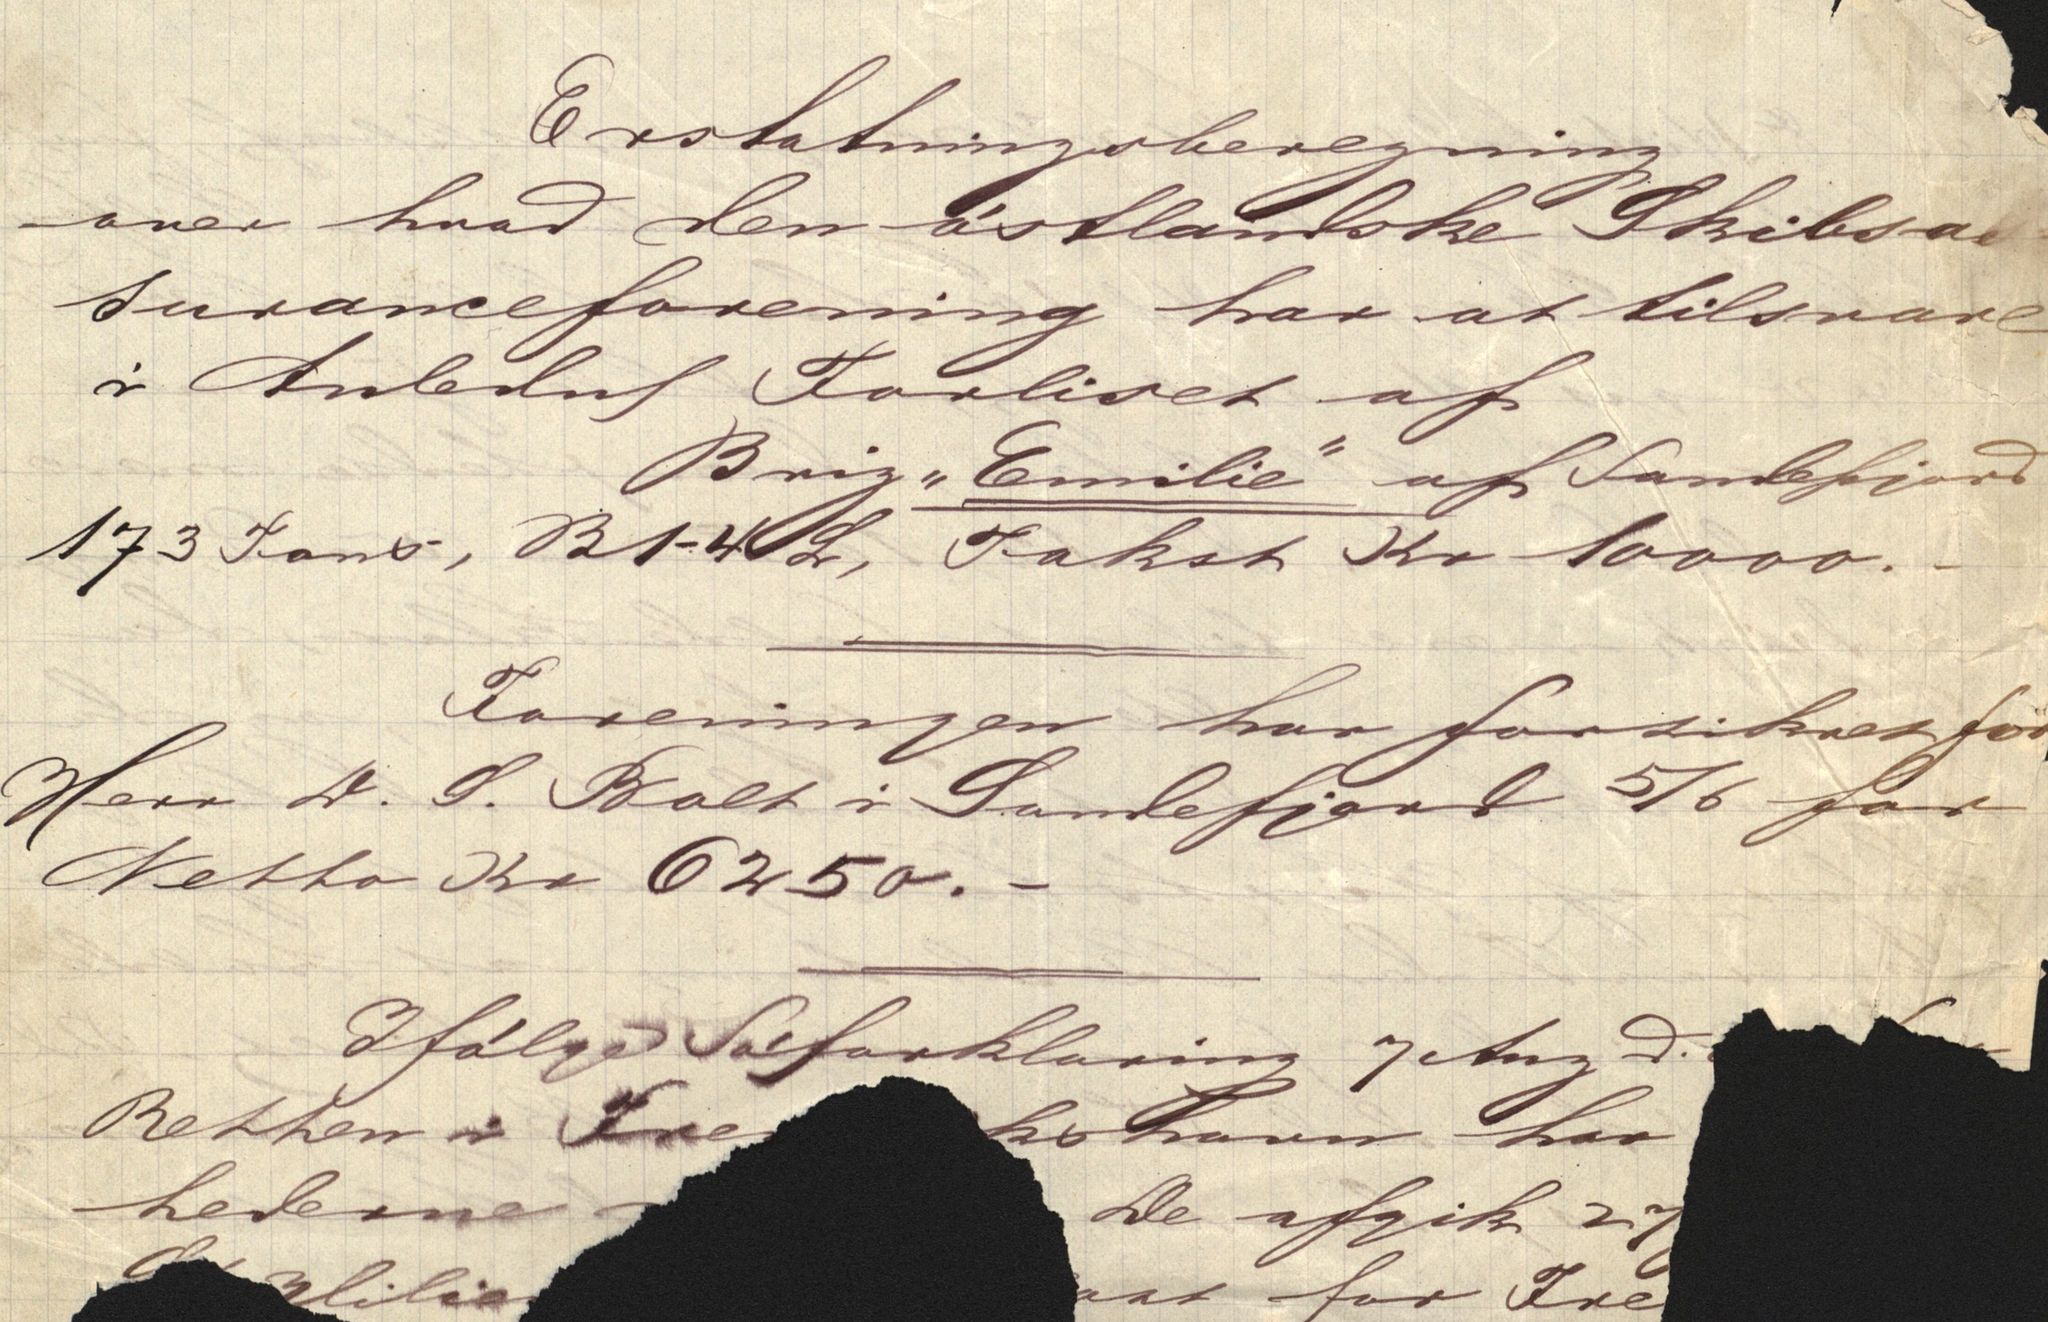 Erstatningsberegning
over hvad den östlandske Skibsas-
suranceforening har at tilsvare
i Anledng Forliset af
Brig „Emilie" af Sandefjord
173 Tons, B1-4 L, Takst Kr 10000.-
Foreningen har forsikret for
Herr W. S. Bolt i Sandefjord 5/6 for
Netto Kr 6250.-
Ifölge Söforklaring 7 Aug d.
Retten i Fre kshavn har
hederne De afgik 27
for Fre